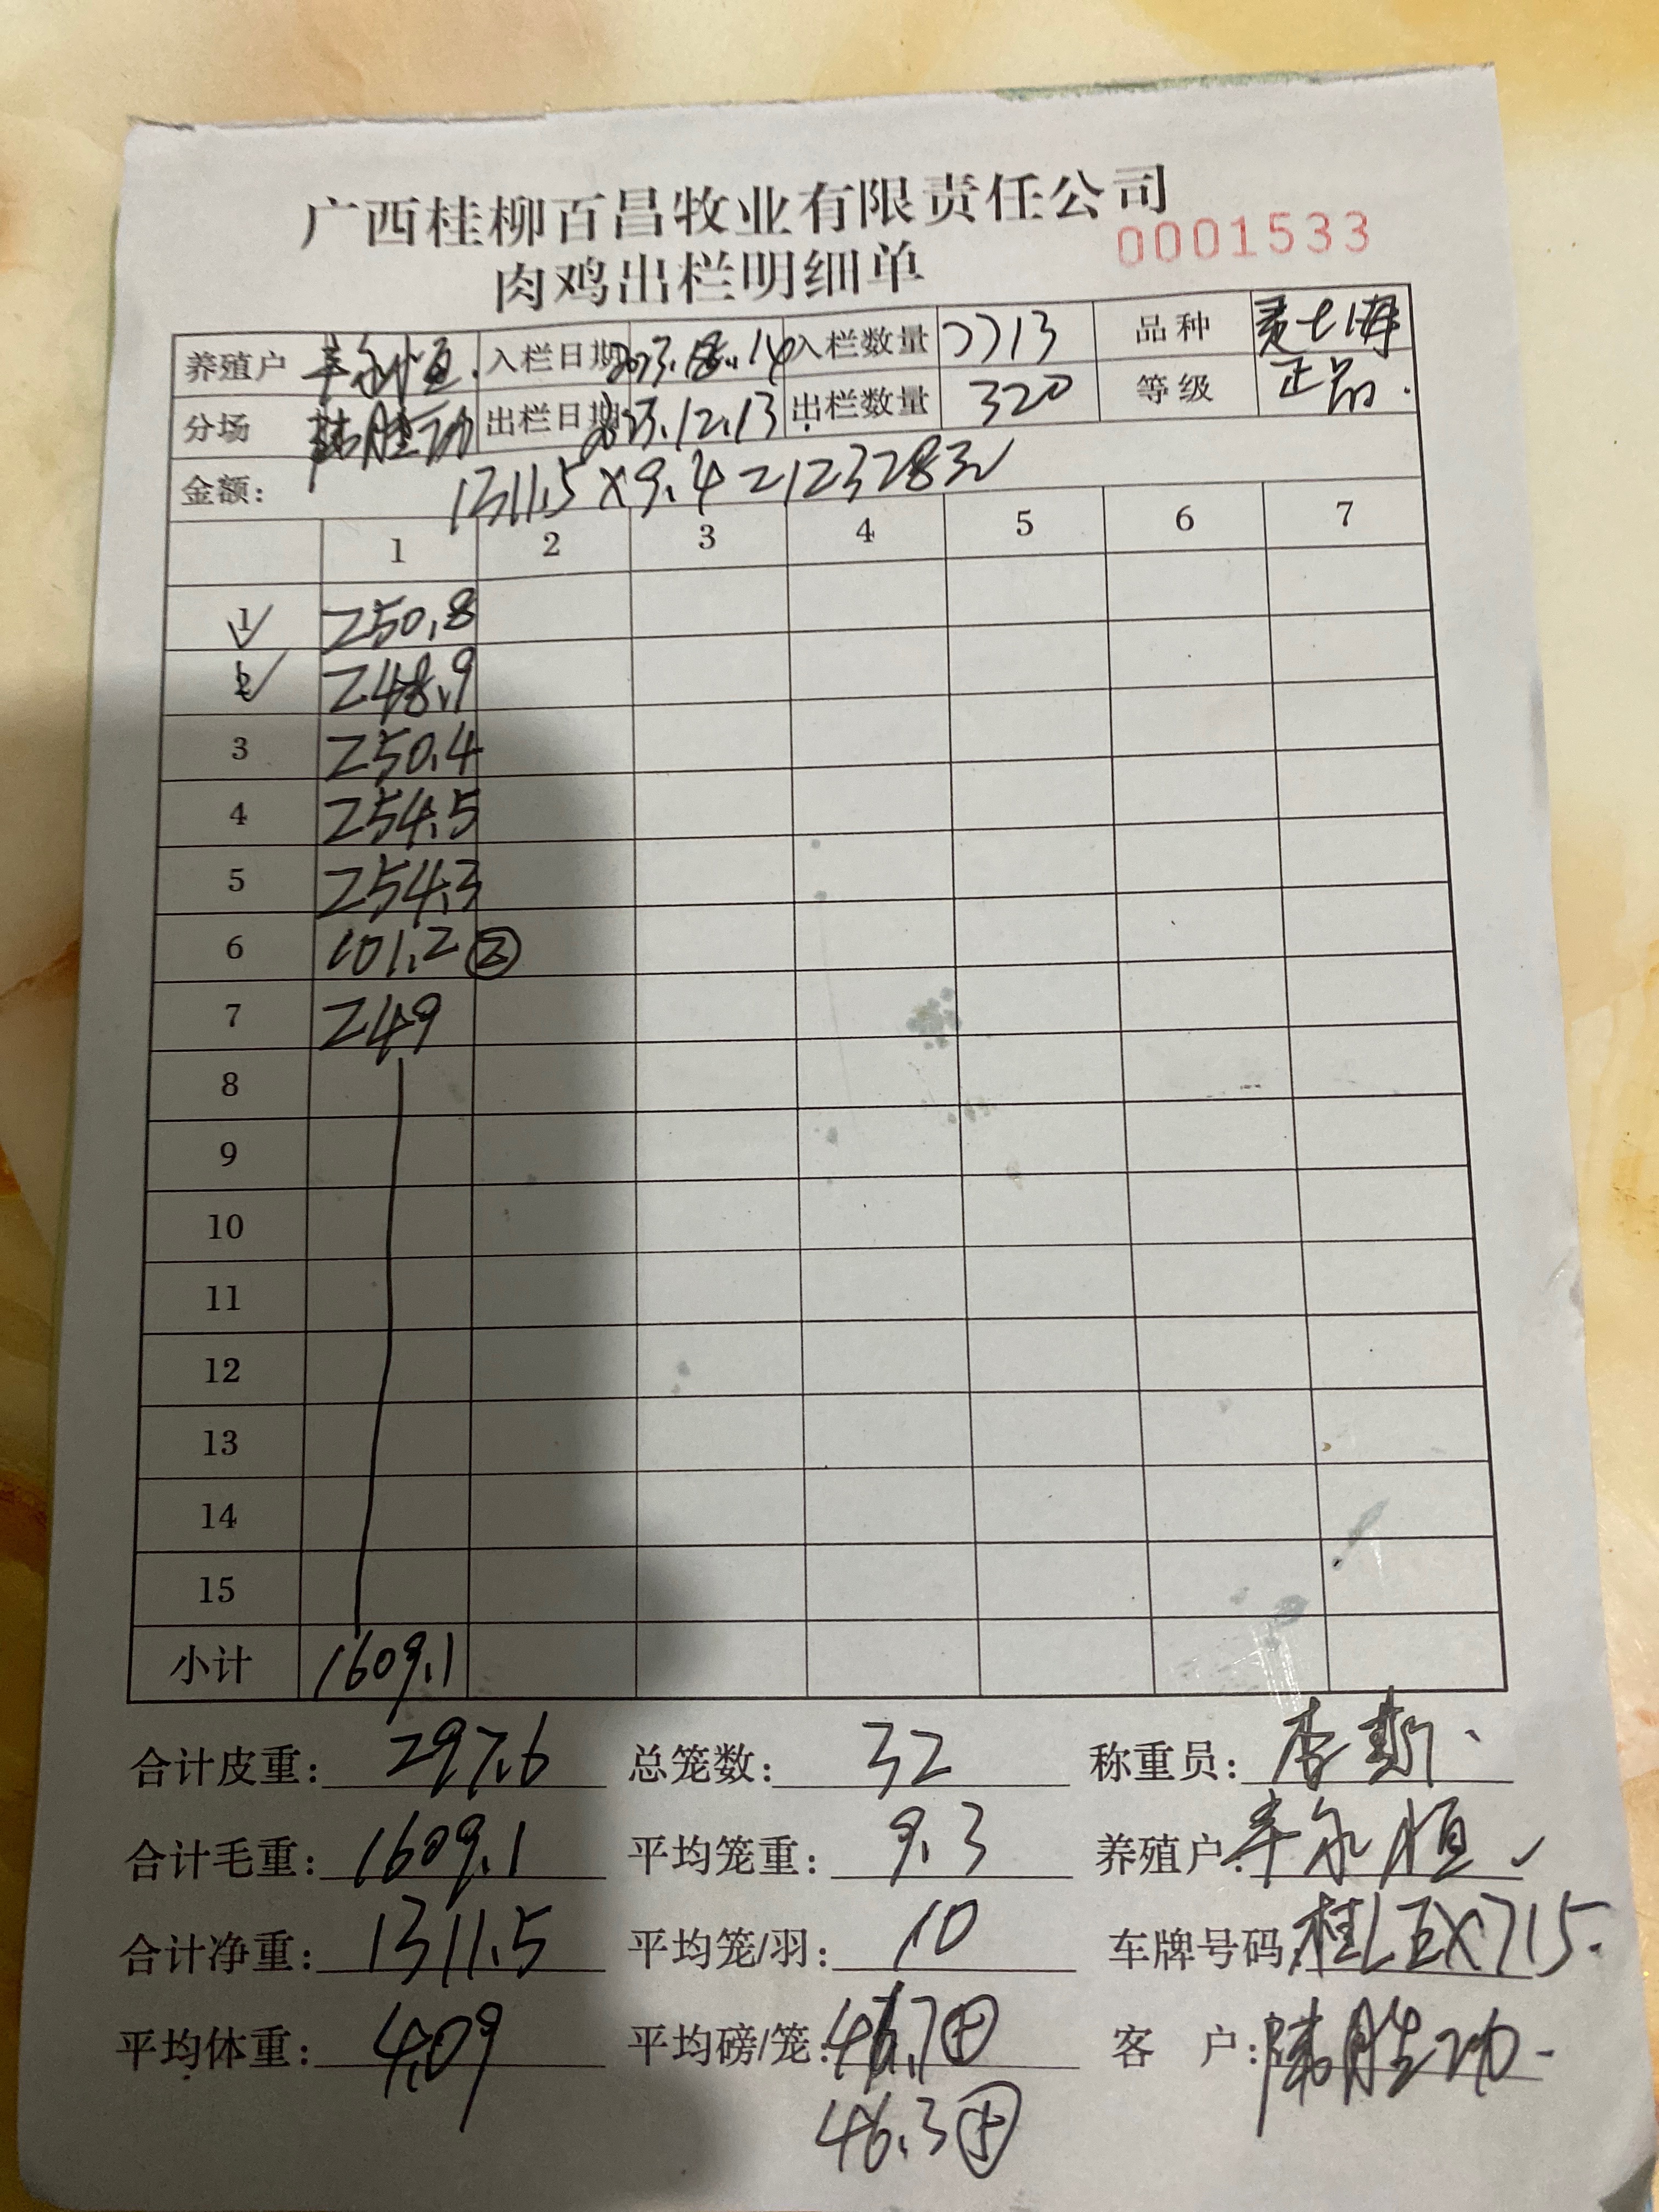 广西桂柳百昌牧业有限责任公司
0001533
肉鸡出栏明细单
养殖户 永恒. 入栏日期 入栏数量 7713 品种
分场 胜功 出栏日期 2023.12.13 出栏数量 320 等级 正品.
金额: 1311.5×9.4=12328元
1 2 3 4 5 6 7
1 250.8
2 248.9
3 250.4
4 254.5
5 254.3
6 101.2 ②
7 249
8
9
10
11
12
13
14
15
小计 1609.1
合计皮重: 297.6 总笼数: 32 称重员: 李
合计毛重: 1609.1 平均笼重: 9.3 养殖户: 永恒
合计净重: 1311.5 平均笼/羽: 10 车牌号码: 桂LEX715.
平均体重: 4.09 平均磅/笼: 46.7 客 户: 胜功
46.3